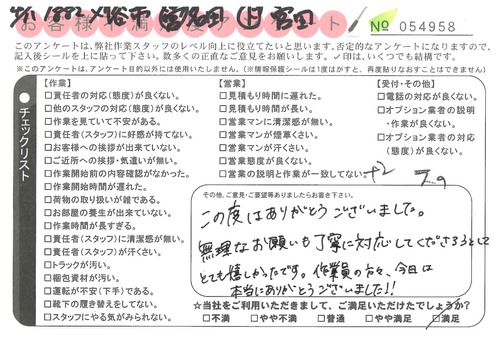 お客様不満足度アンケート
№ 054958
このアンケートは、弊社作業スタッフのレベル向上に役立てたいと思います。否定的なアンケートになりますので、
記入後シールを上に貼って下さい。数多くの正直なご意見をお願いします。✓印は、いくつでも結構です。
※このアンケートは、アンケート目的以外には使用いたしません。(※情報保護シールは1度はがすと、再度貼りなおすことはできません)
チェックリスト
【作業】
□責任者の対応(態度)が良くない。
□他のスタッフの対応(態度)が良くない。
□作業を見ていて不安がある。
□責任者(スタッフ)に好感が持てない。
□お客様への挨拶が出来ていない。
□ご近所への挨拶・気遣いが無い。
□作業開始前の内容確認がなかった。
□作業開始時間が遅れた。
□荷物の取り扱いが雑である。
□お部屋の養生が出来ていない。
□作業時間が長すぎる。
□責任者(スタッフ)に清潔感が無い。
□責任者(スタッフ)が汗くさい。
□トラックが汚い。
□梱包資材が汚い。
□運転が不安(下手)である。
□靴下の履き替えをしてない。
□スタッフにやる気がみられない。
【営業】
□見積もり時間に遅れた。
□見積もり時間が長い。
□営業マンに清潔感が無い。
□営業マンが煙草くさい。
□営業マンが汗くさい。
□営業態度が良くない。
□営業の説明と作業が一致してない
【受付・その他】
□電話の対応が良くない。
□オプション業者の説明
・作業が良くない。
□オプション業者の対応
(態度)が良くない。
その他、ご意見・ご要望等ありましたらお書き下さい。
この度はありがとうございました。
無理なお願いも丁寧に対応してくださろうとして
とても嬉しかったです。作業員の方々、今日は
本当にありがとうございました!!
☆当社をご利用いただきまして、ご満足いただけたでしょうか?
□不満 □やや不満 □普通 □やや満足 □満足